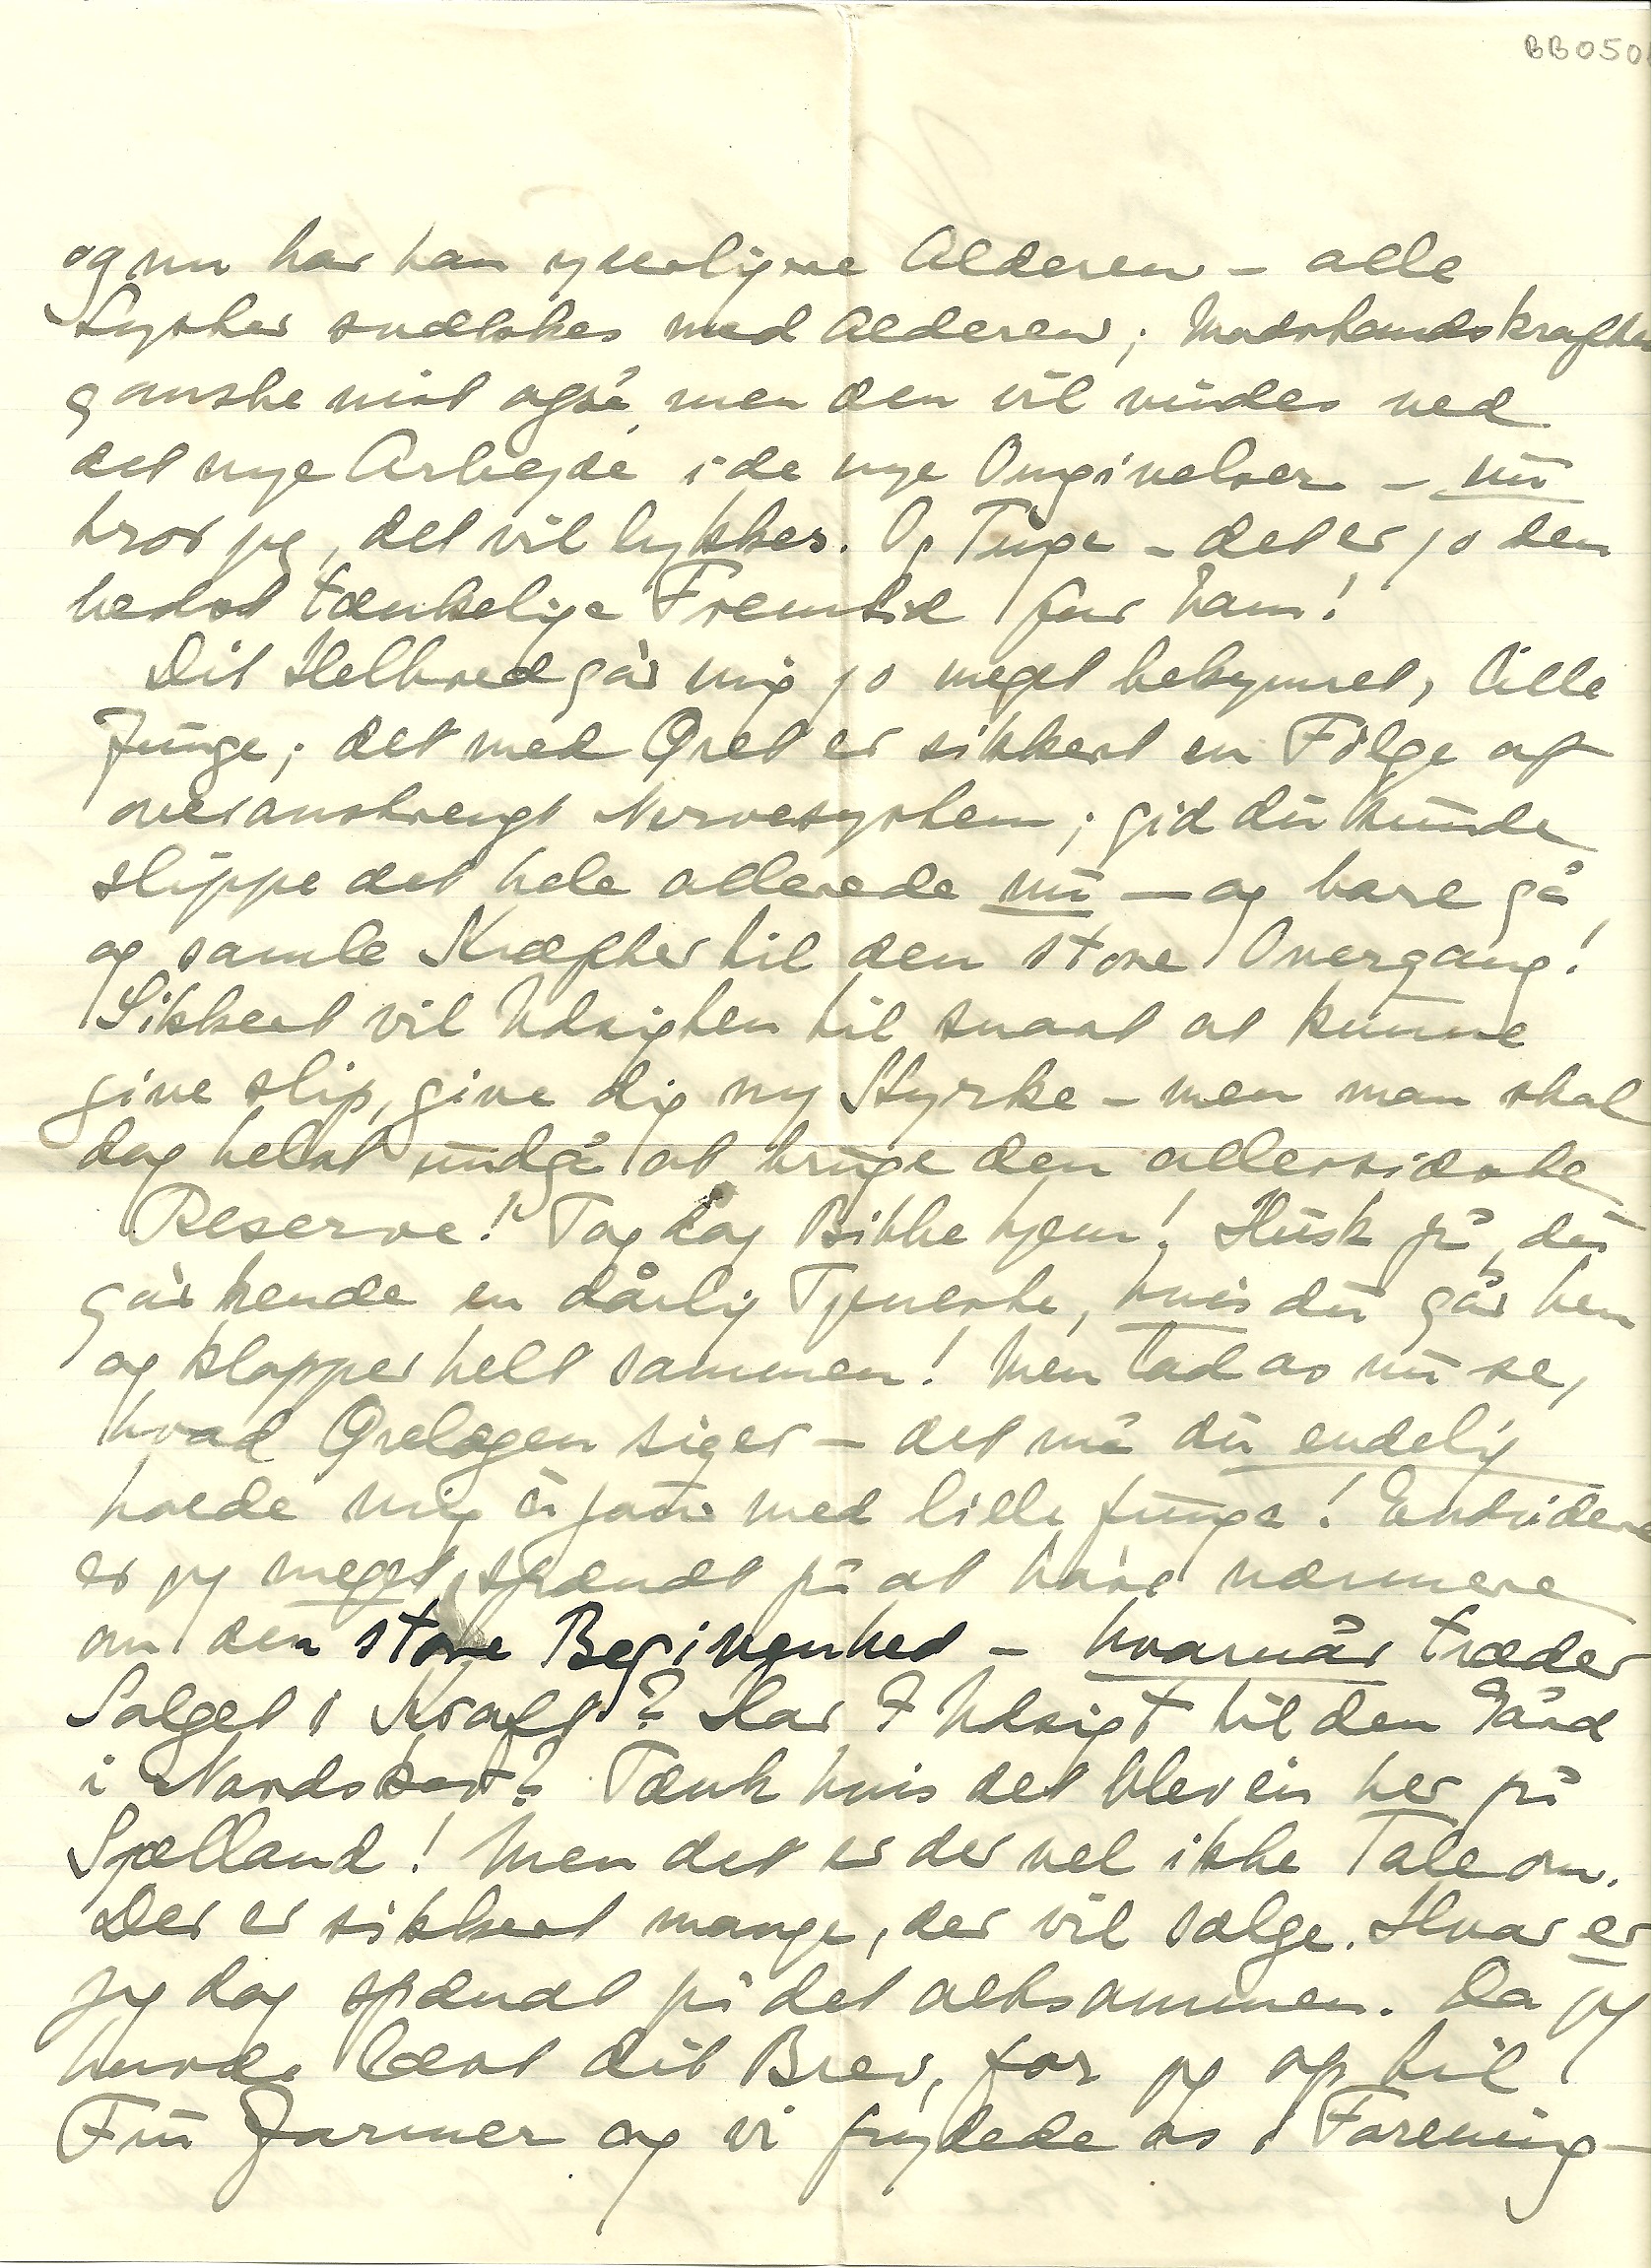 BB050
og nu har han yderligere Alderen – alle
Lyster svækkes med Alderen; Modstandskraften
ganske vist også, men den vil vindes ved
det nye Arbejde i de nye Omgivelser – nu
tror jeg, det vil lykkes. Og Tuge – det er jo den
bedst tænkelige Fremtid for ham!
Dit Helbred gør mig jo meget bekymret, lille
Junge; det med Øret er sikkert en Følge af
overanstrengt Nervesystem; gid du kunde
slippe det hele allerede nu – og bare gå
og samle Kræfter til den store Overgang!
Sikkert vil Udsigten til snart at kunne
give slip, give dig ny Styrke – men man skal
dog helst undgå at bruge den allersidste
Reserve! Tag dog Bibbe hjem! Husk på, du
gør hende en dårlig Tjeneste, hvis du går hen
og klapper helt sammen! Men lad os nu se,
hvad Ørelægen siger – det må du endelig
holde mig à jour med lille Junge! Endvidere
er jeg meget spændt på at høre nærmere
om den store Begivenhed – hvornår træder
Salget i Kraft? Har I Udsigt til den Gård
i Nordskov? Tænk hvis det blev en her på
Sjælland! Men det er der vel ikke Tale om.
Der er sikkert mange, der vil sælge. Hvor er
jeg dog spændt på det altsammen. Da jeg
havde læst dit Brev, for jeg op til
Fru Jarmer og vi frydede os i Forening –